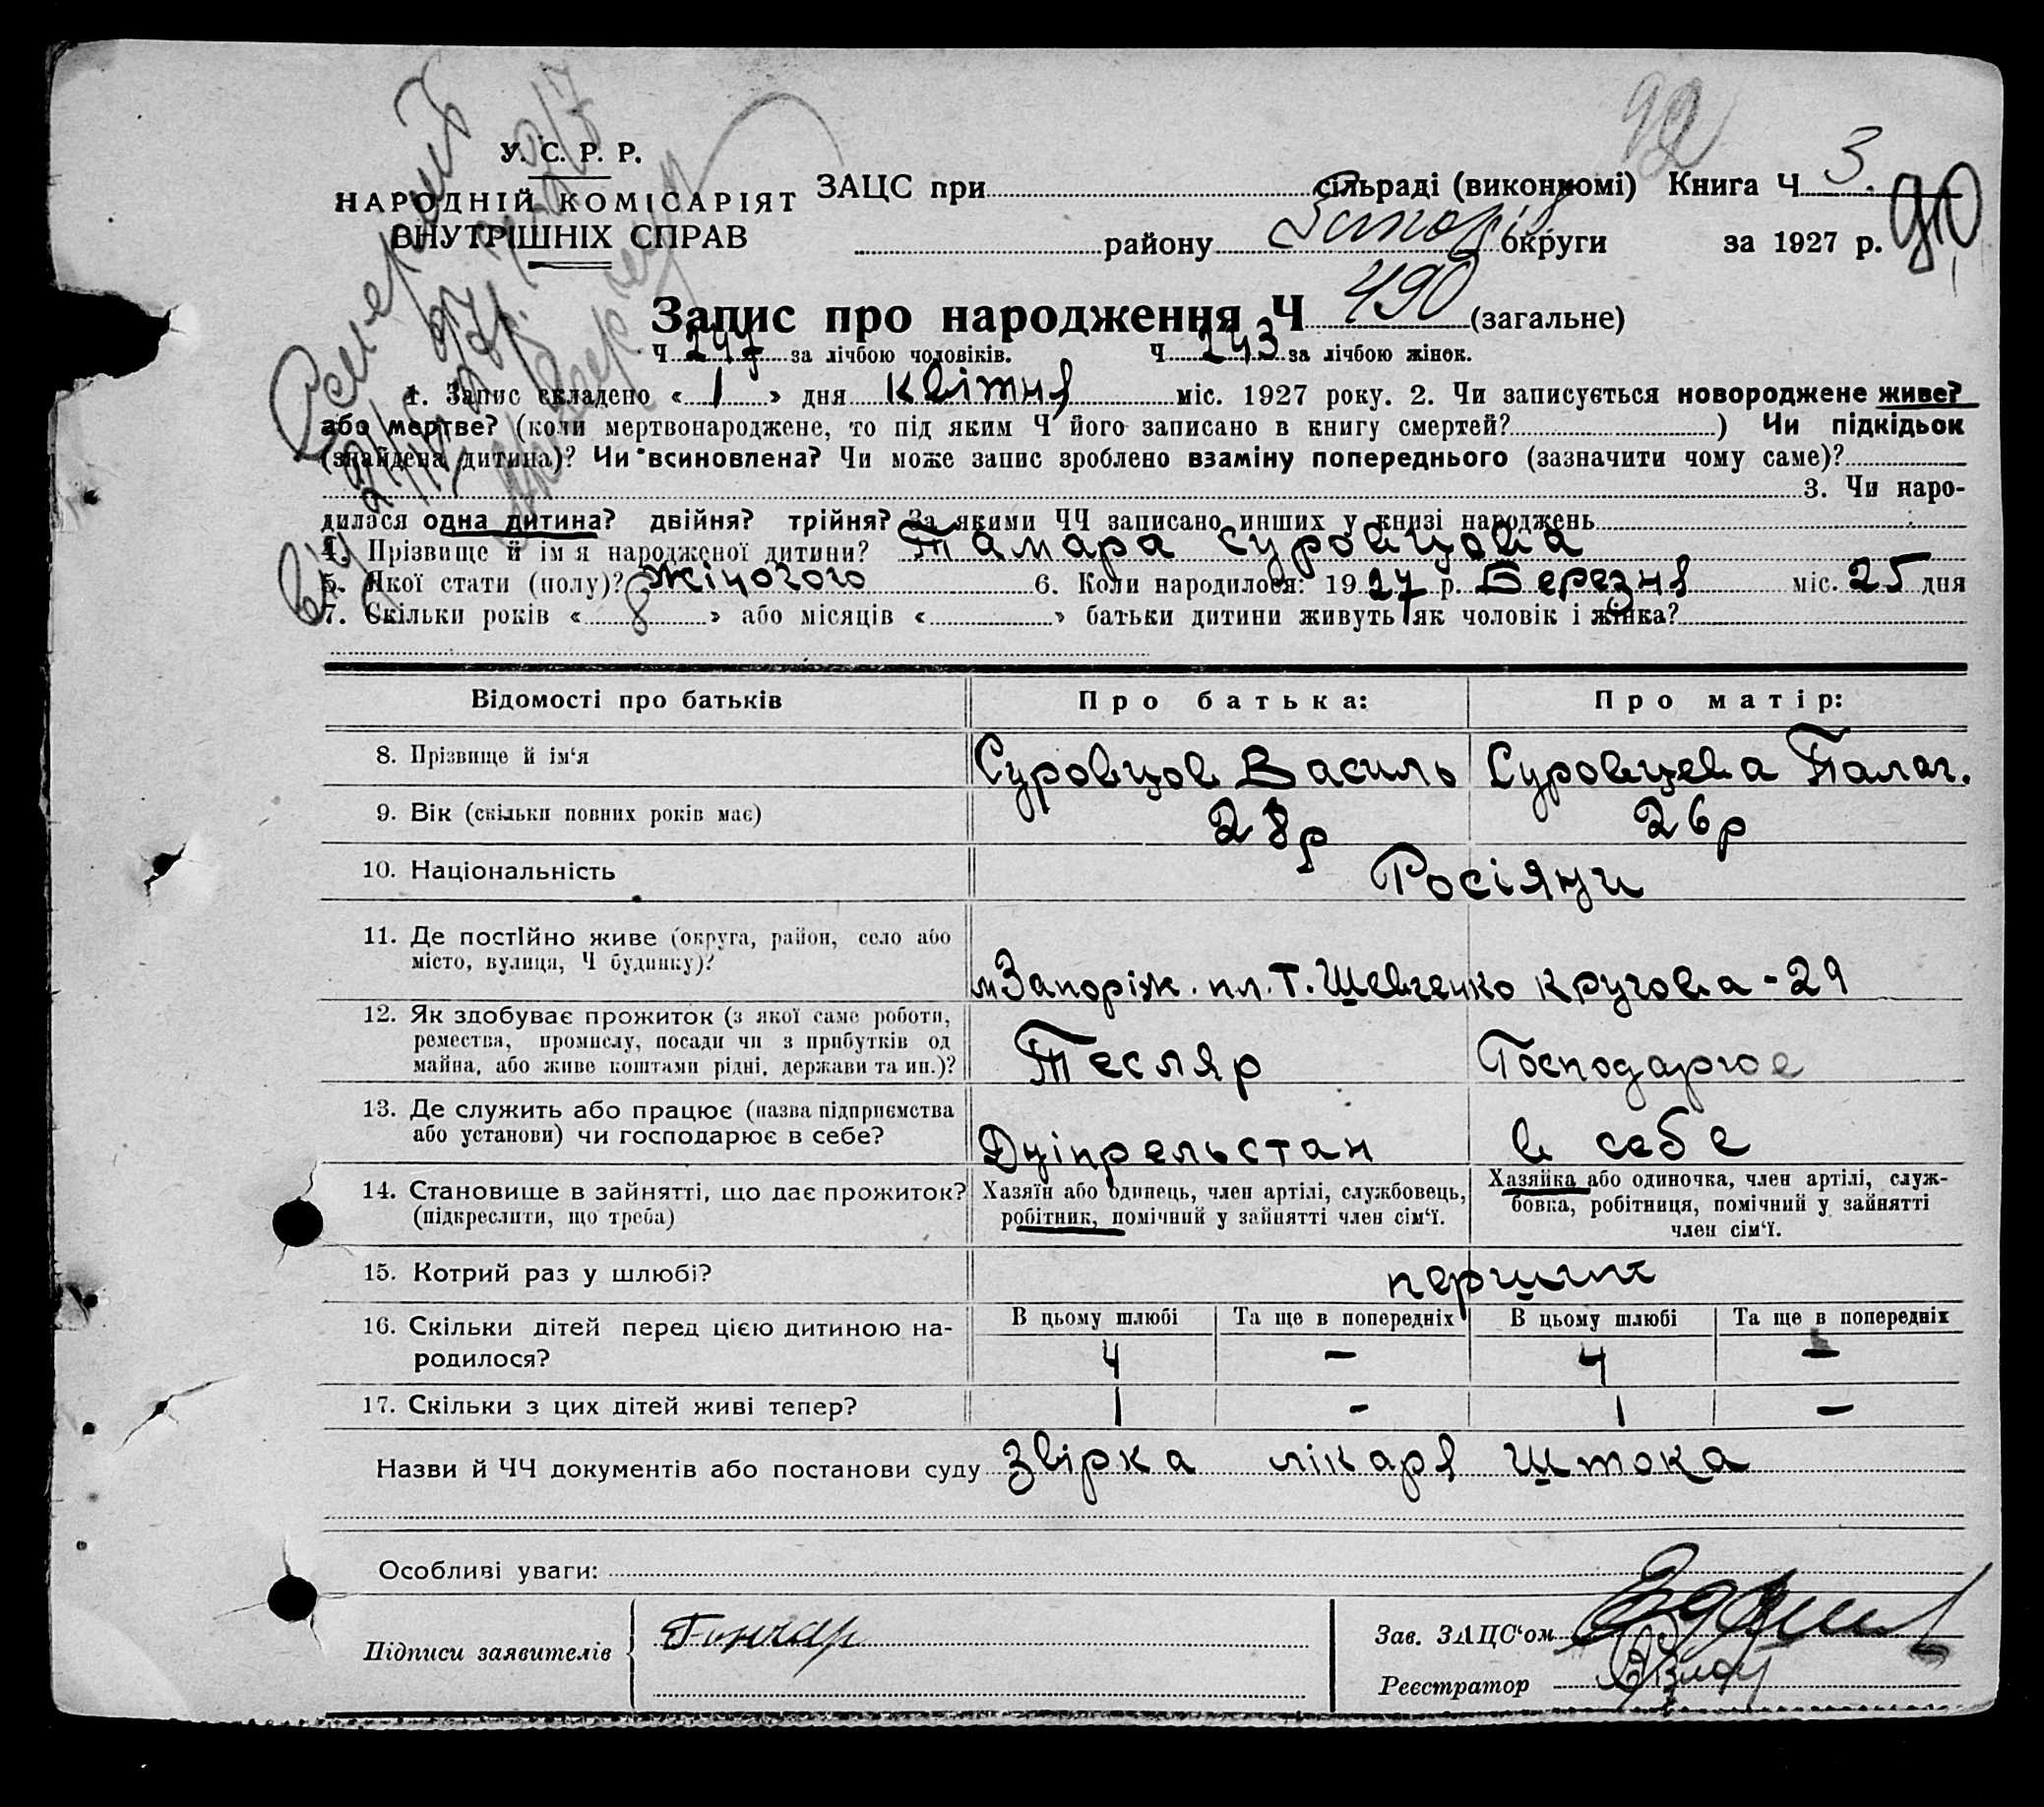 92
У. С. Р. Р.
НАРОДНІЙ КОМІСАРІЯТ
ВНУТРІШНІХ СПРАВ
ЗАЦС при сільраді (виконкомі) Книга Ч 3.
району Запоріз округи за 1927 р. 90
Запис про народження Ч 490 (загальне)
Ч 247 за лічбою чоловіків. Ч 243 за лічбою жінок.
1. Запис складено « 1 » дня квітня міс. 1927 року. 2. Чи записується новороджене живе?
або мертве? (коли мертвонароджене, то під яким Ч його записано в книгу смертей? ) Чи підкідьок
(знайдена дитина)? Чи всиновлена? Чи може запис зроблено взаміну попереднього (зазначити чому саме)?
3. Чи наро-
дилася одна дитина? двійня? трійня? За якими ЧЧ записано инших у книзі народжень
4. Прізвище й ім'я народженої дитини? Тамара Суровцова
5. Якої стати (полу)? жіночого 6. Коли народилося: 1927 р. Березня міс. 25 дня
7. Скільки років « 8 » або місяців « » батьки дитини живуть як чоловік і жінка?
Відомості про батьків Про батька: Про матір:
8. Прізвище й ім'я Суровцов Василь Суровцева Палаг.
9. Вік (скільки повних років має) 28р 26р
10. Національність Росіяни
11. Де постійно живе (округа, район, село або
місто, вулиця, Ч будинку)? м Запоріж. пл. Т. Шевченко кругова - 29
12. Як здобуває прожиток (з якої саме роботи,
ремества, промислу, посади чи з прибутків од
майна, або живе коштами рідні, держави та ин.)? Тесляр Господарює
13. Де служить або працює (назва підприємства
або установи) чи господарює в себе? Дніпрельстан в себе
14. Становище в зайнятті, що дає прожиток?
(підкреслити, що треба)
Хазяїн або одинець, член артілі, службовець,
робітник, помічний у зайнятті член сім'ї.
Хазяйка або одиночка, член артілі, служ-
бовка, робітниця, помічний у зайнятті
член сім'ї.
15. Котрий раз у шлюбі? перший
16. Скільки дітей перед цією дитиною на-
родилося?
В цьому шлюбі Та ще в попередніх В цьому шлюбі Та ще в попередніх
4 — 4 —
17. Скільки з цих дітей живі тепер? 1 - 1 —
Назви й ЧЧ документів або постанови суду Звірка лікаря Штока
Особливі уваги:
Підписи заявителів Гончар
Зав. ЗАЦС'ом
Реєстратор